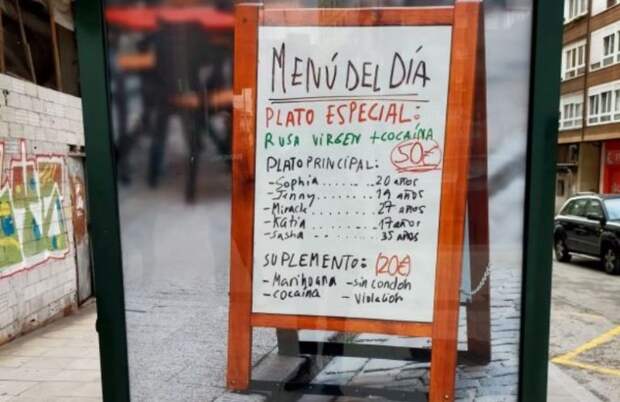 MENÚ DEL DÍA
PLATO ESPECIAL:
RUSA VIRGEN + COCAÍNA
50€
PLATO PRINCIPAL:
-Sophia ......... 20 años
-Jenny ......... 19 años
-Miracle ......... 27 años
-Katia ......... 17 años
-Sasha ......... 35 años
SUPLEMENTO: 20€
-Marihuana -sin condon
-cocaína -Violacion